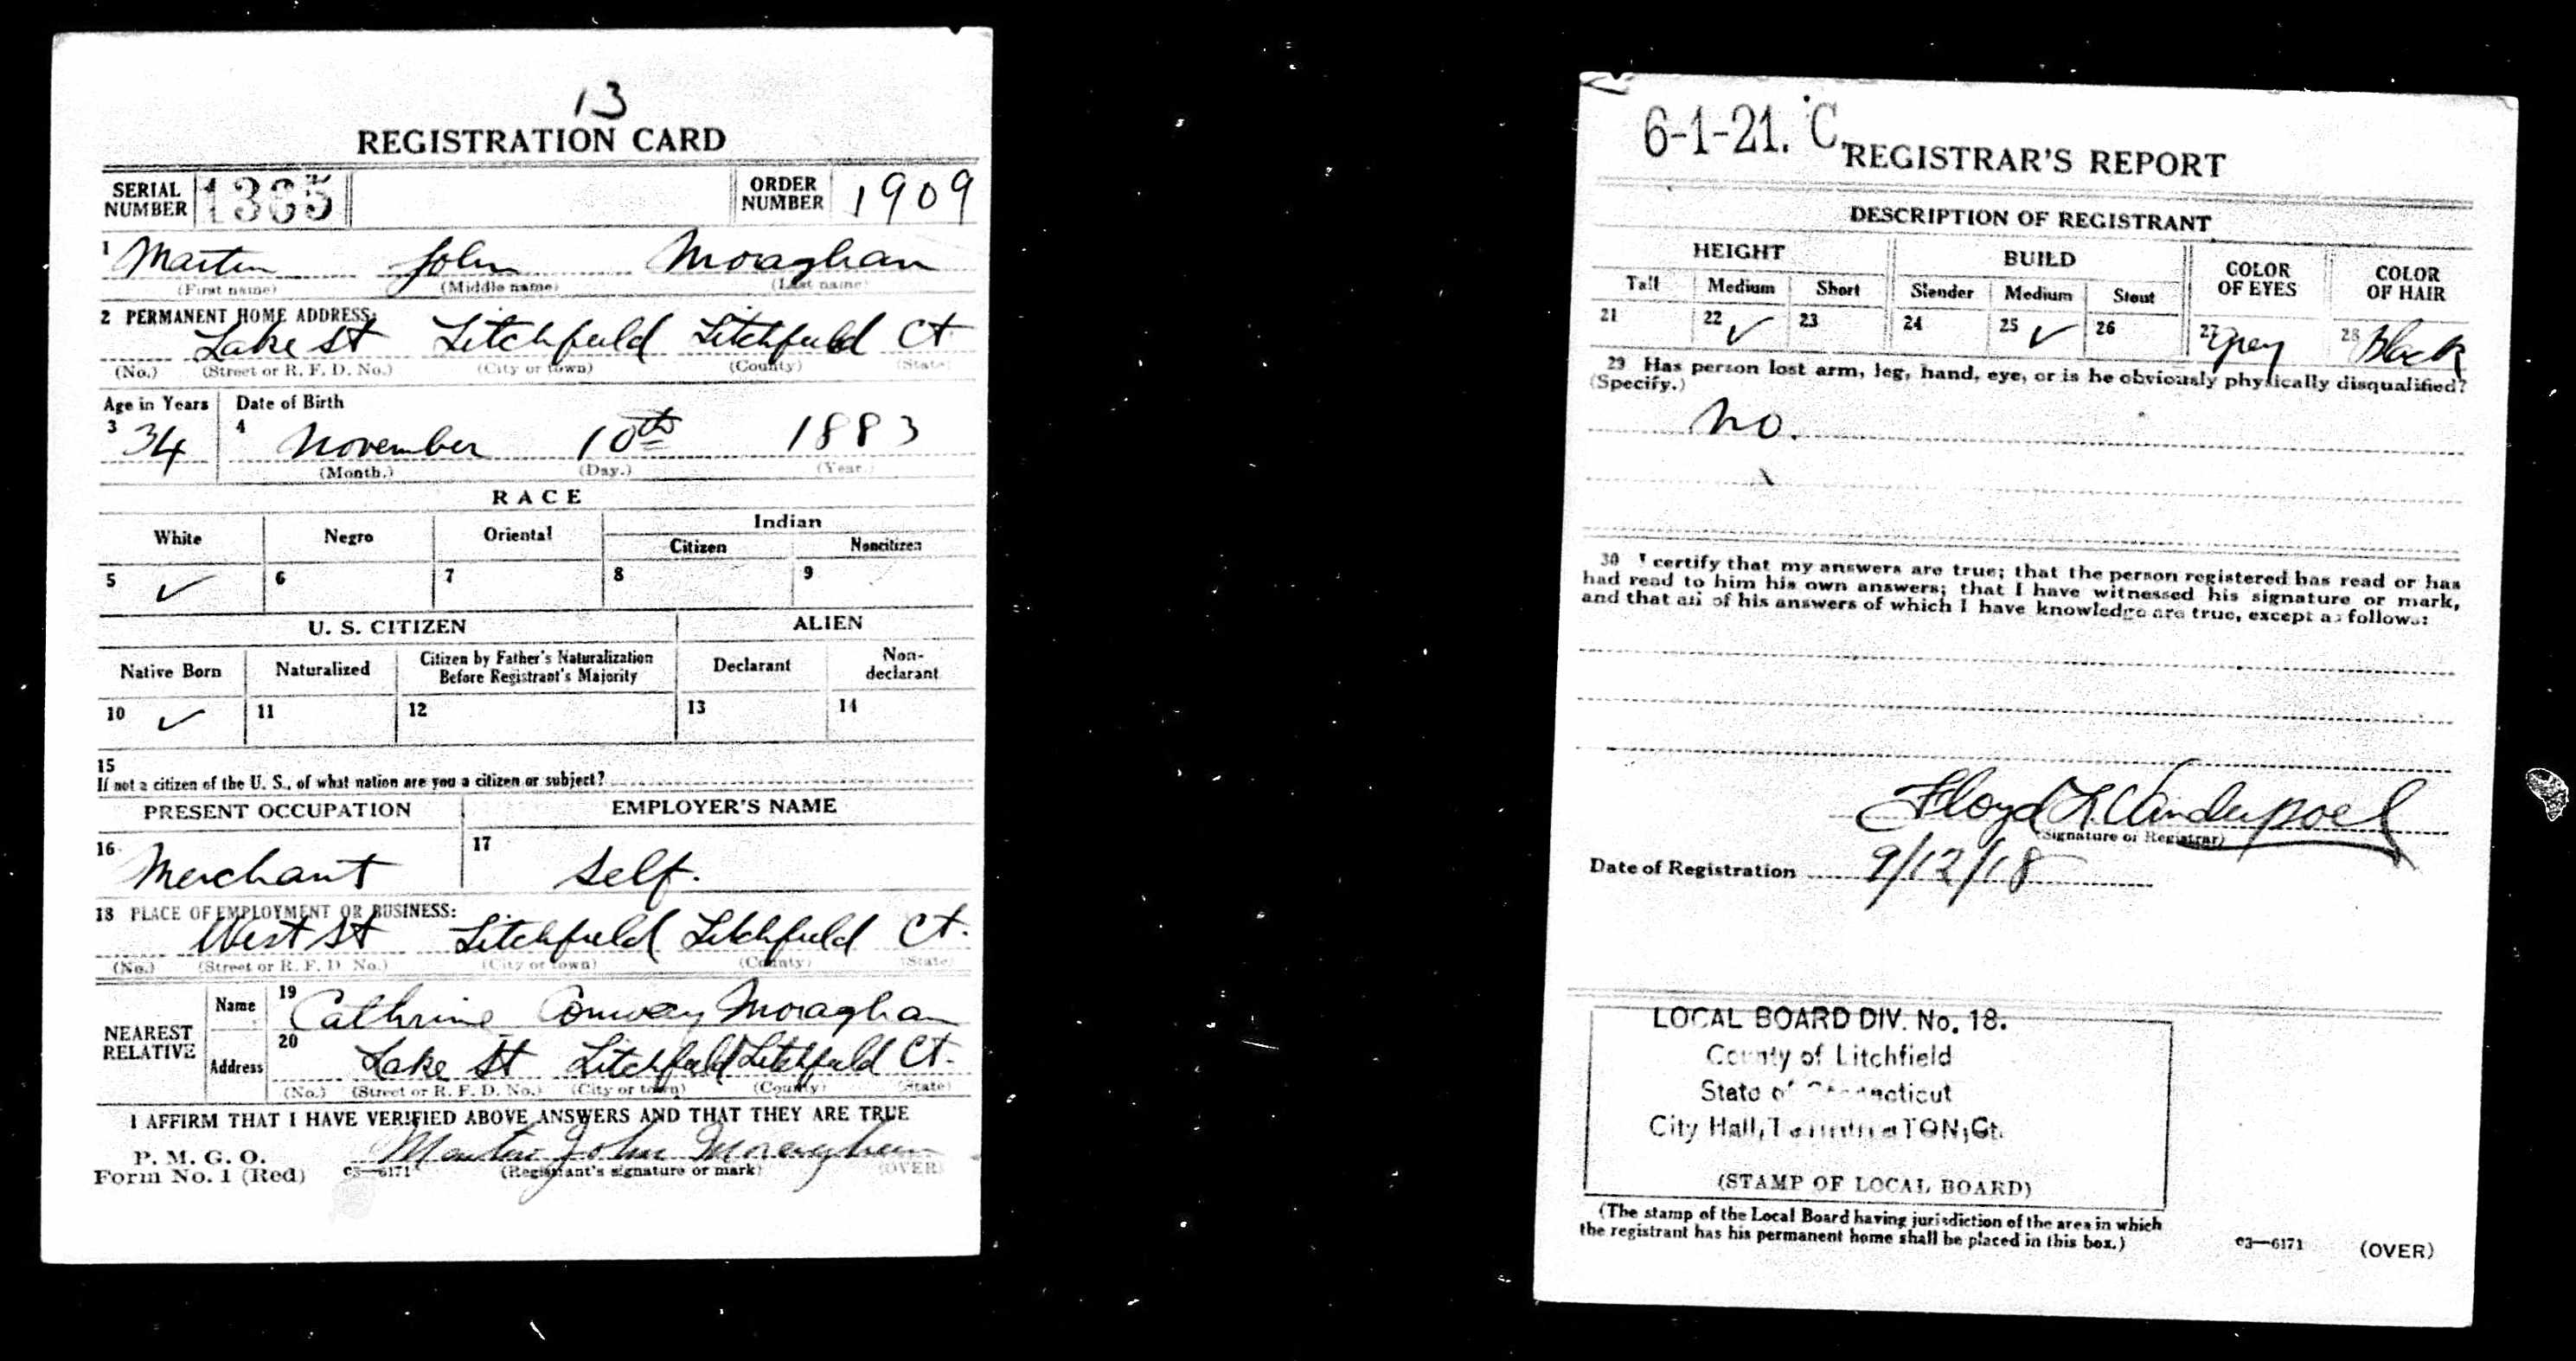 13
REGISTRATION CARD
SERIAL NUMBER 1365 ORDER NUMBER 1909
1 Martin John Moraghan
(First name) (Middle name) (Last name)
2 PERMANENT HOME ADDRESS:
Lake St Litchfield Litchfield Ct
(No.) (Street or R. F. D. No.) (City or town) (County) (State)
Age in Years Date of Birth
3 34 4 November 10th 1883
(Month.) (Day.) (Year.)
RACE
White Negro Oriental Indian
Citizen Noncitizen
5 ✓ 6 7 8 9
U. S. CITIZEN ALIEN
Native Born Naturalized Citizen by Father's Naturalization Before Registrant's Majority Declarant Non-declarant
10 ✓ 11 12 13 14
15
If not a citizen of the U. S., of what nation are you a citizen or subject?
PRESENT OCCUPATION EMPLOYER'S NAME
16 Merchant 17 Self.
18 PLACE OF EMPLOYMENT OR BUSINESS:
West St Litchfield Litchfield Ct.
(No.) (Street or R. F. D. No.) (City or town) (County) (State)
NEAREST RELATIVE
Name 19 Cathrine Conway Moraghan
Address 20 Lake St Litchfield Litchfield Ct.
(No.) (Street or R. F. D. No.) (City or town) (County) (State)
I AFFIRM THAT I HAVE VERIFIED ABOVE ANSWERS AND THAT THEY ARE TRUE
P. M. G. O. Martin John Moraghan
Form No. 1 (Red) c3—6171 (Registrant's signature or mark) (OVER)
6-1-21. C.
REGISTRAR'S REPORT
DESCRIPTION OF REGISTRANT
HEIGHT BUILD COLOR OF EYES COLOR OF HAIR
Tall Medium Short Slender Medium Stout
21 22 ✓ 23 24 25 ✓ 26 27 Grey 28 Black
29 Has person lost arm, leg, hand, eye, or is he obviously physically disqualified?
(Specify.)
No.
30 I certify that my answers are true; that the person registered has read or has
had read to him his own answers; that I have witnessed his signature or mark,
and that all of his answers of which I have knowledge are true, except as follows:
Floyd L Vanderpoel
(Signature of Registrar)
Date of Registration 9/12/18
LOCAL BOARD DIV. No. 18.
County of Litchfield
State of Connecticut
City Hall, Ct.
(STAMP OF LOCAL BOARD)
(The stamp of the Local Board having jurisdiction of the area in which
the registrant has his permanent home shall be placed in this box.)
c3—6171 (OVER)